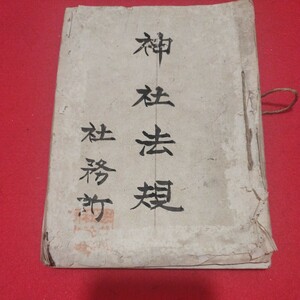 神社法規
社務所